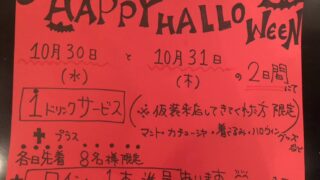 HAPPY HALLOWEEN
10月30日 と 10月31日
(水) (木) の2日間にて
1ドリンクサービス (※仮装来店してきてくれた方限定)
マント・カチューシャ・着ぐるみ・ハロウィングッズなど
プラス
各日先着 8名様限定